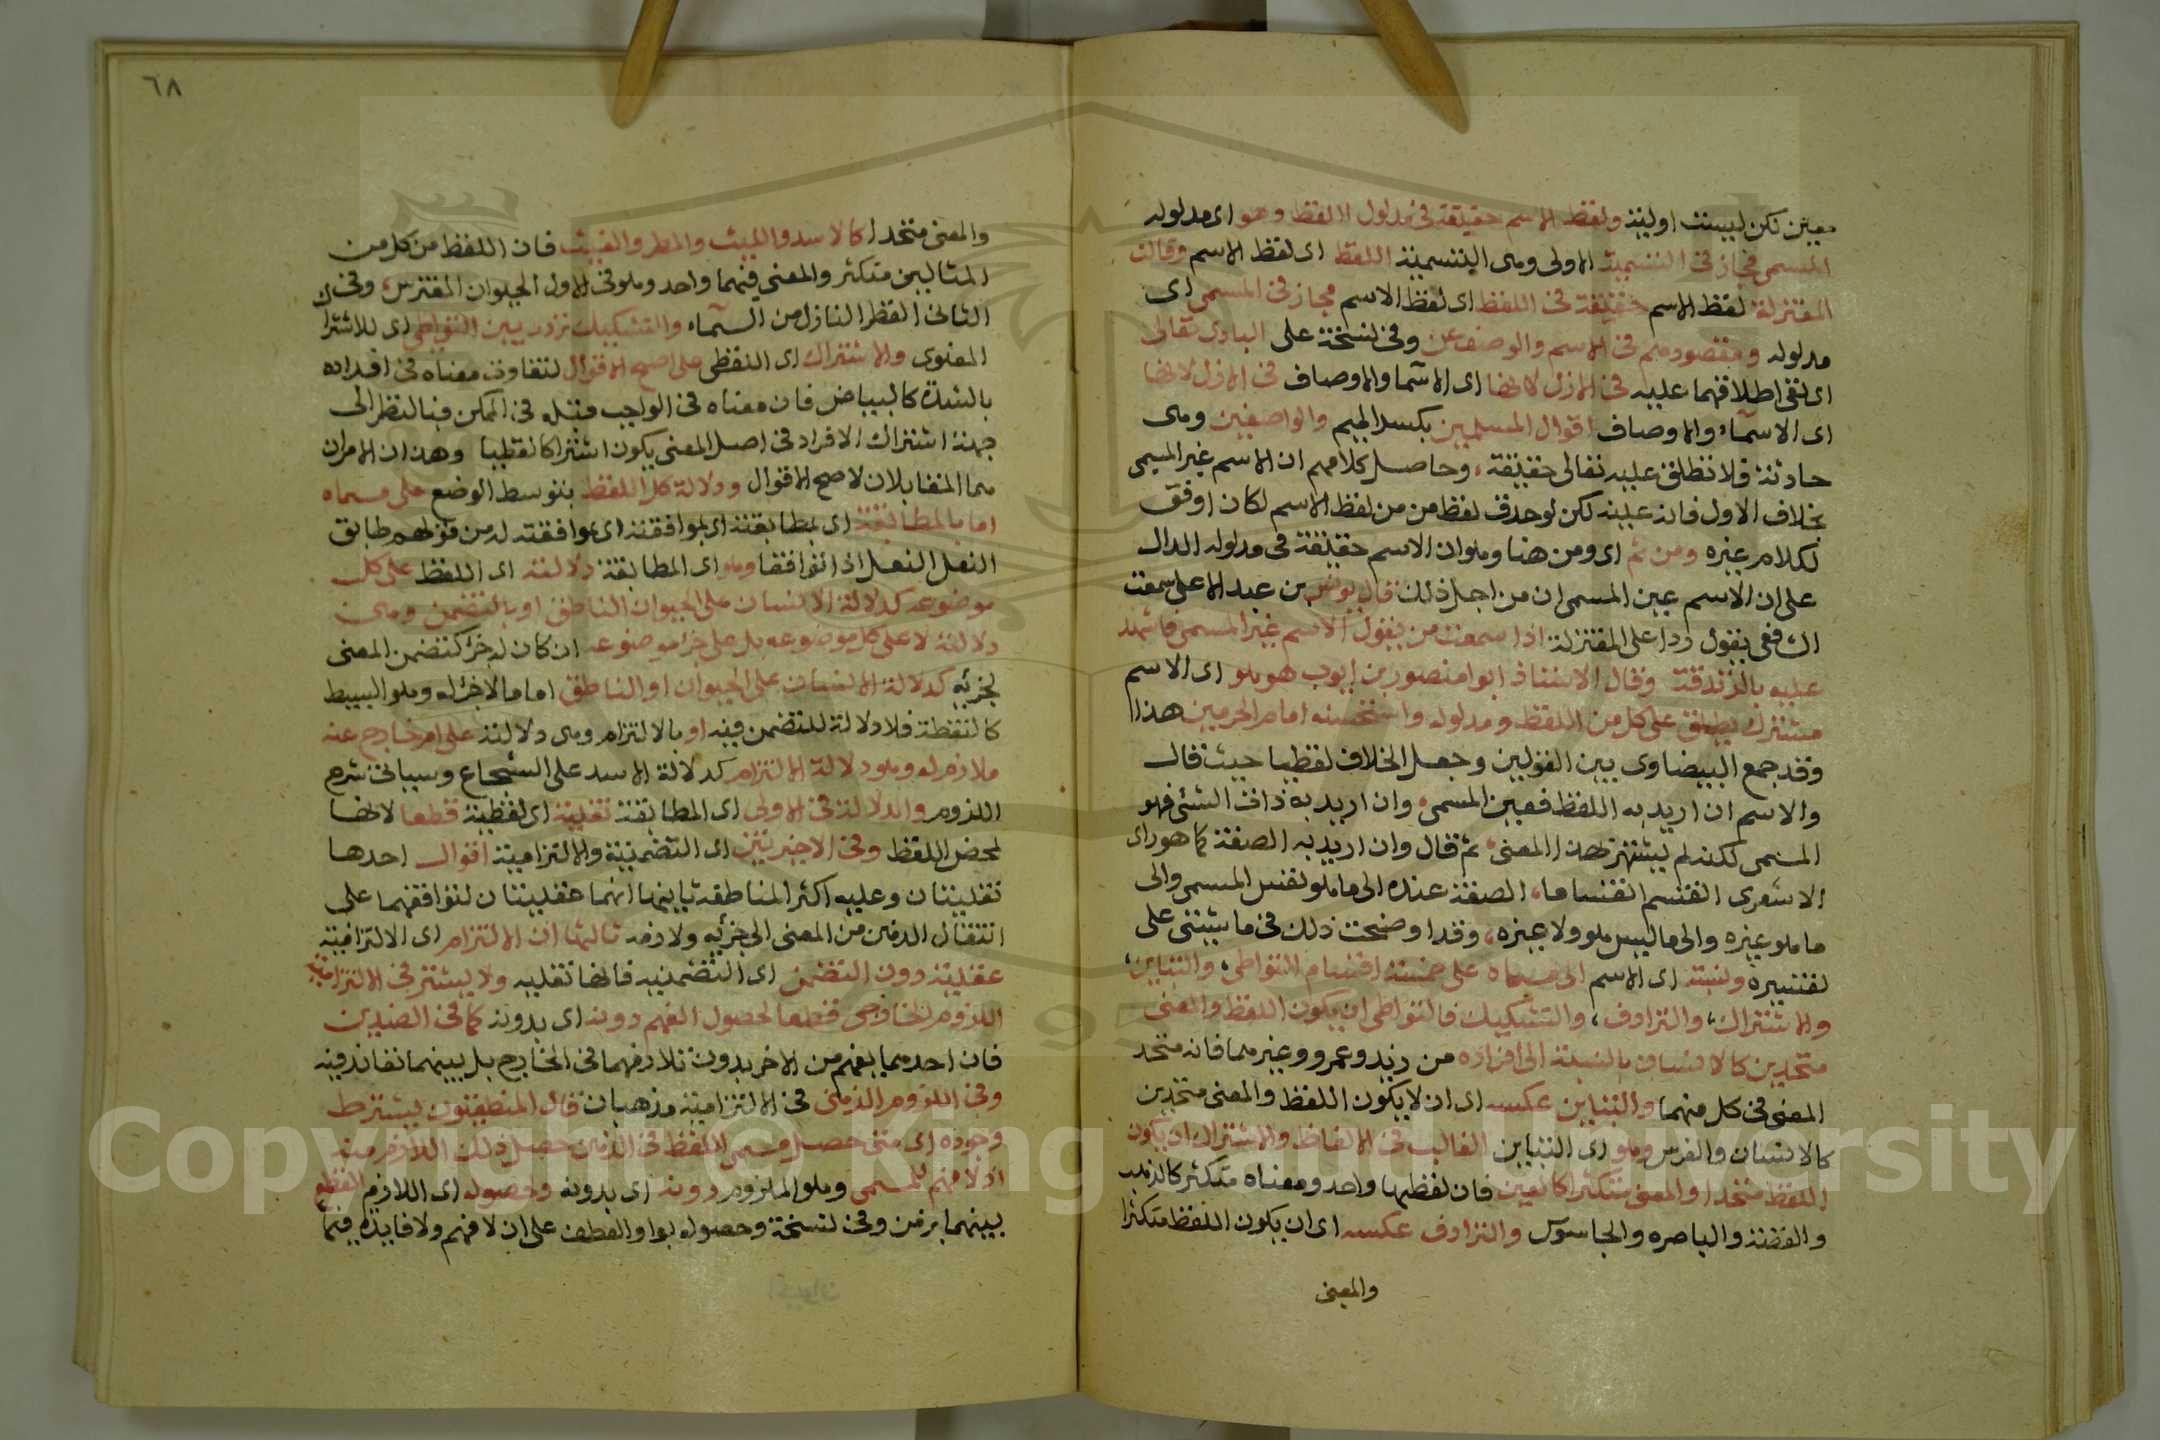 معين لكن ليست اولية ولفظ الاسم حقيقة في مدلول الالفظ وهو اى مدلوله
المسمى مجاز في التسمية الاولى وهى التسمية اللفظ اى لفظ الاسم وقالت
المعتزلة لفظ الاسم حقيقة في اللفظ اى لفظ الاسم مجاز في المسمى اى
مدلوله ومقصودهم في الاسم والوصف عن وفي نسخة على البارى تعالى
اى نفى اطلاقهما عليه في الازل لانها اى الاسما والاوصاف في الازل لانها
اى الاسماء والاوصاف اقوال المسلمين بكسر الميم والواصفين وهى
حادثة فلا تطلق عليه تعالى حقيقة، وحاصل كلامهم ان الاسم غير المسمى
بخلاف الاول فانه عليه لكن لو حذف لفظ من من لفظ الاسم لكان اوفق
لكلام غيره ومن ثم اى ومن هنا وهو ان الاسم حقيقة في مدلوله الدال
على ان الاسم عين المسمى ان من اجل ذلك قال يونس بن عبد الاعلى سمعت
الشافعى يقول ردا على المعتزلة اذا سمعت من يقول الاسم غير المسمى فاشهد
عليه بالزندقة وقال الاستاذ ابو منصور بن ايوب هو هو اى الاسم
مشترك يطلق على كل من اللفظ ومدلوله واستحسنه امام الحرمين هذا
وقد جمع البيضاوى بين القولين وجعل الخلاف لفظيا حيث قال
والاسم ان اريد به اللفظ فعين المسمى، وان اريد به ذات الشئ فهو
المسمى لكنه لم يشتهر بهذا المعنى، ثم قال وان اريد به الصفة كما هو راى
الاشعرى انقسم انقساما، الصفة عنده الى ما هو نفس المسمى والى
ما هو غيره والى ما ليس هو ولا غيره، وقد اوضحت ذلك في ما يثنى على
تفسيره ونسبة اى الاسم الى مسماه على خمسة اقسام التواطى، والتباين،
والاشتراك، والترادف، والتشكيك فالتواطى ان يكون اللفظ والمعنى
متحدين كالانسان بالنسبة الى افراده من زيد وعمرو وغيرهما فانه متحد
المعنى في كل منهما والتباين عكسه اى ان لا يكون اللفظ والمعنى متحدين
كالانسان والفرس وهو اى التباين الغالب في الالفاظ والاشتراك ان يكون
اللفظ متحدا والمعنى متكثرا كالعين فان لفظها واحد ومعناه متكثر كالذهب
والفضة والباصره والجاسوس والترادف عكسه اى ان يكون اللفظ متكثرا
والمعنى
٦٨
والمعنى متحدا كالاسد والليث والمطر والغيث فان اللفظ من كل من
المثالين متكثر والمعنى فيهما واحد وهو في الاول الحيوان المفترس، وفي
الثانى القطر النازل من السماء والتشكيك تردد بين التواطى اى للاشتراك
المعنوى والاشتراك اى اللفظى على اصح الاقوال لتفاوت معناه في افراده
بالشدة كالبياض فان معناه في الواجب قبله في الممكن فبالنظر الى
جهة اشتراك الافراد في اصل المعنى يكون اشتراكا لفظيا وهذان الامران
هما المتقابلان لاصح الاقوال ودلالة كل اللفظ بتوسط الوضع على مسماه
اما بالمطابقة اى لمطابقته اى لموافقته اى بموافقته له من قولهم طابق
النعل النعل اذا توافقا وهو اى المطابقة دلالته اى اللفظ على كل
موضوعه كدلالة الانسان على الحيوان الناطق او بالتضمن وهى
دلالته لا على كل موضوعه بل على جزء موضوعه ان كان له جزء كتضمن المعنى
لجزئه كدلالة الانسان على الحيوان او الناطق اما ما لا جزء له وهو البسيط
كالنقطة فلا دلالة للتضمن فيه او بالالتزام وهى دلالته على امر خارج عنه
ملازم له وهو دلالة الالتزام كدلالة الاسد على الشجاع وسياتى شرح
اللزوم والدلالة في الاولى اى المطابقة نقلية اى لفظية قطعا لانها
لمحض اللفظ وفي الاخيرتين اى التضمنية والالتزامية اقوال احدها
نقليتان وعليه اكثر المناطقة ثانيها انهما عقليتان لتوافقهما على
انتقال الذهن من المعنى الى جزئه ولازمه ثالثها ان الالتزام اى الالتزامية
عقلية دون التضمن اى التضمنيه فانها نقليه ولا يشترط في الالتزامية
اللزوم الخارجى قطعا لحصول الفهم دونه اى بدونه كما في الضدين
فان احدهما يفهم من الاخر بدون تلازمهما في الخارج بل بينهما تعاند فيه
وفي اللزوم الذهنى في الالتزامية مذهبان قال المنطقيون يشترط
وجوده اى متى حصل مسمى اللفظ في الذهن حصل ذلك اللازم منه
اذ لا فهم للمسمى وهو الملزوم دونه اى بدونه وحصوله اى اللازم
بينهما برمن وفي نسخة وحصوله بواو العطف على ان لا فهم ولا فايدة فيما